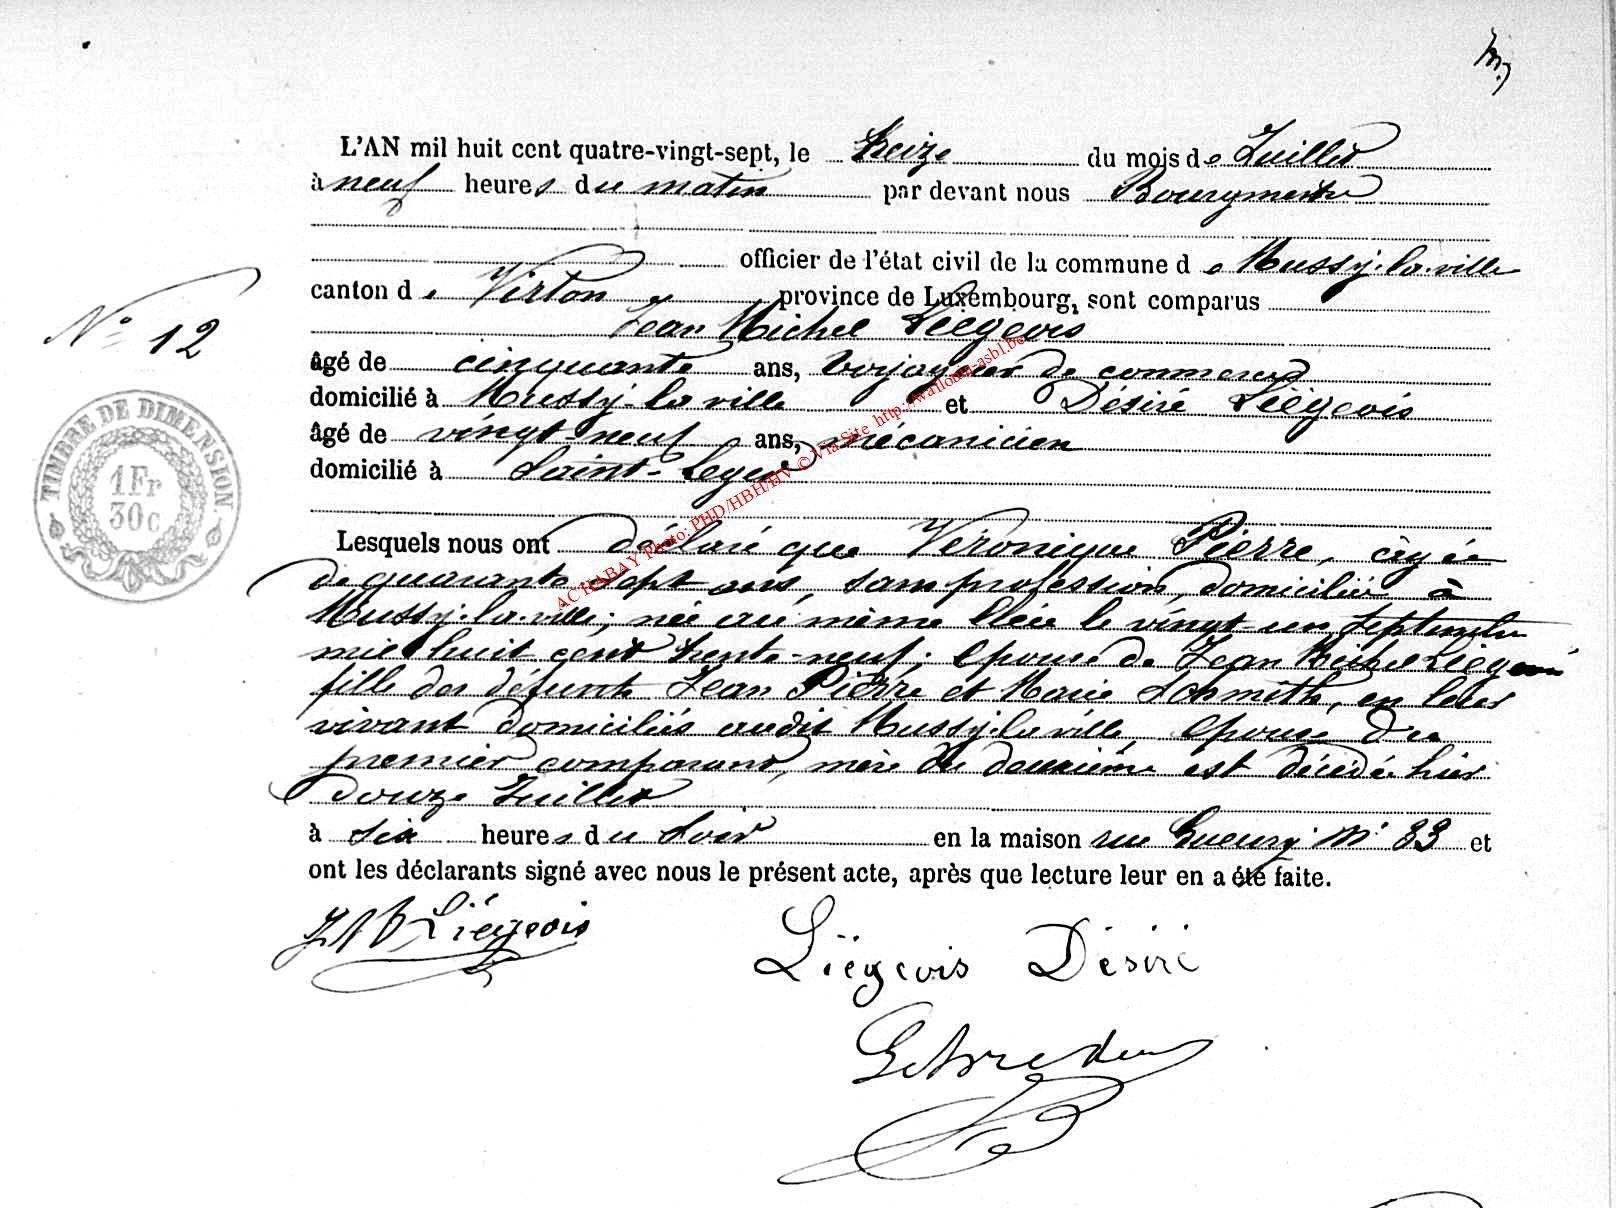 L'AN mil huit cent quatre-vingt-sept, le treize du mois de Juillet
à neuf heures du matin par devant nous Bourgmestre
officier de l'état civil de la commune de Mussy-la-ville
canton de Virton province de Luxembourg, sont comparus
Jean Michel Liégeois
N° 12
âgé de cinquante ans, voyageur de commerce
domicilié à Mussy-la-ville et Désiré Liégeois
âgé de vingt-neuf ans, mécanicien
domicilié à Saint-Léger
TIMBRE DE DIMENSION
1Fr
30c
AC HABAY Photo: PHD/HBH/HV © Via Site http://wallonia-asbl.be
Lesquels nous ont déclaré que Véronique Pierre, âgée
de quarante sept ans, sans profession, domiciliée à
Mussy-la-ville, née au même lieu le vingt-un septembre
mil huit cent trente-neuf; épouse de Jean Michel Liégeois
fille des défunts Jean Pierre et Marie, en leur
vivant domiciliés audit Mussy-la-ville épouse du
premier comparant, mère du deuxième est décédée hier
douze Juillet
à six heures du soir en la maison rue N° 33 et
ont les déclarants signé avec nous le présent acte, après que lecture leur en a été faite.
JM Liégeois
Liégeois Désiré